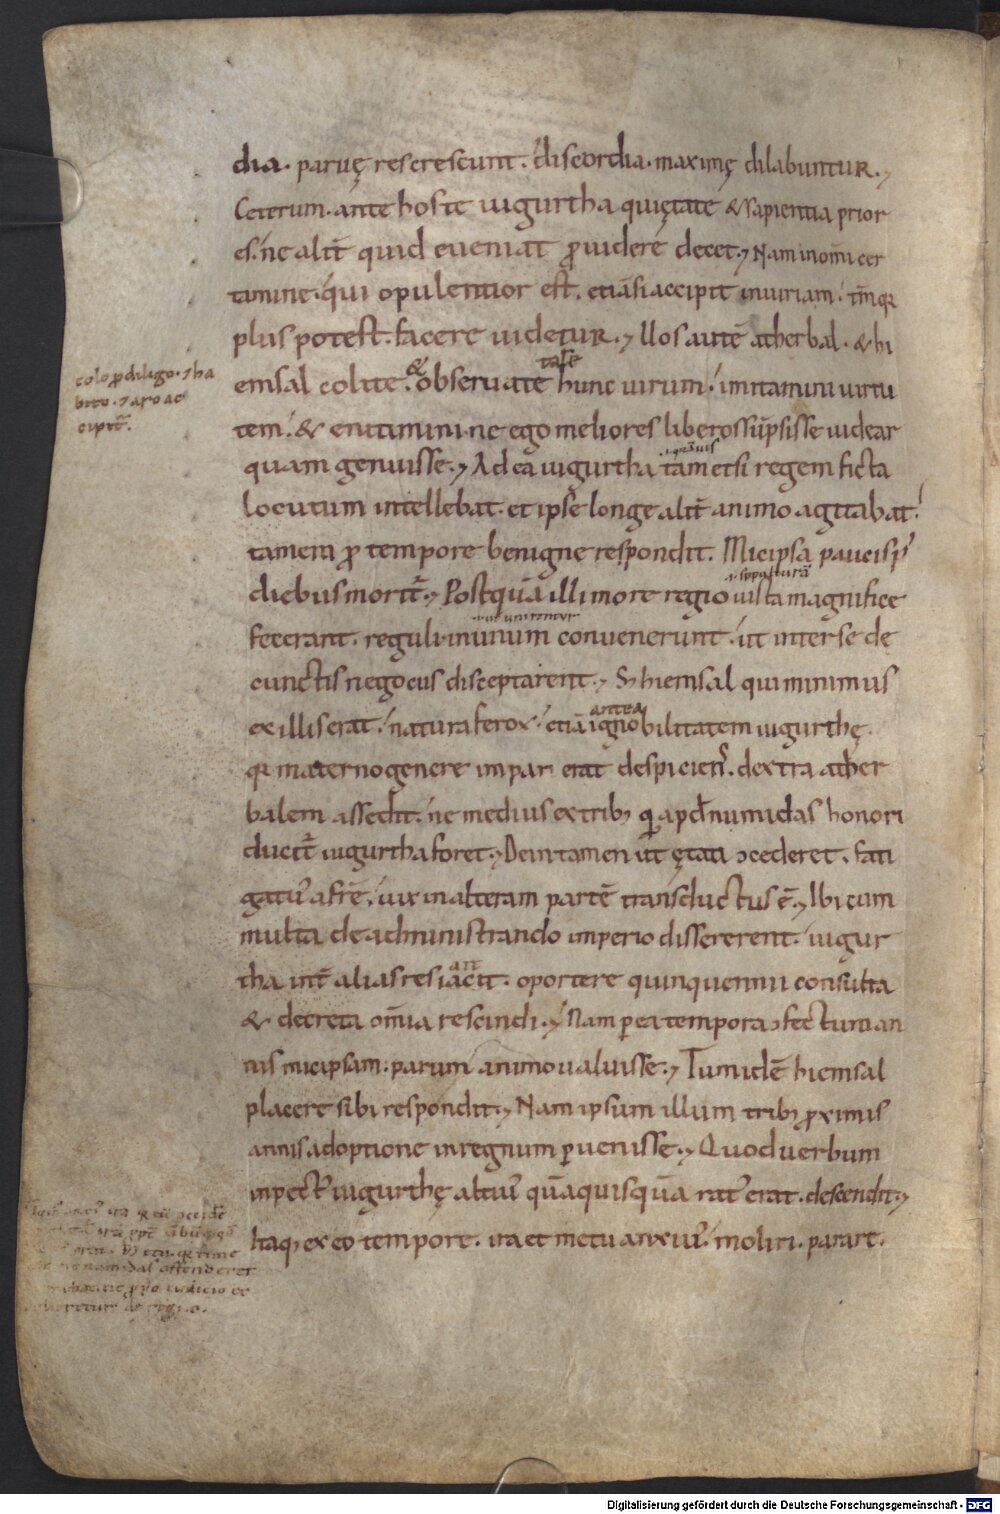 dia. paruę res crescunt. discordia. maximę dilabuntur.
Ceterum. ante hos te iugurtha qui ętate & sapientia prior
es. ne alit̄ quid eueniat ꝓuidere decet. Nam in om̄i cer
tamine. qui opulentior est. etiā si accipit iniuriam. tam̄ qꝛ
plus potest. facere uidetur. Uos autē atherbal. & hi
colo ꝓ diligo. 7 ha
bito. 7 aro ac
cipit̄.
&
talē
emsal colite. obseruate hunc uirum. imitamini uirtu
tem. & enitimini. ne ego meliores liberos sūpsisse uidear
.i. quāuis
quam genuisse. Ad ea iugurtha tametsi regem ficta
locutum intellebat. et ipse longe alit̄ animo agitabat.
tamen ꝓ tempore benigne respondit. Micipsa paucis p̄
diebus morit̄. Postquā illi more regio iusta magnifice
fecerant. reguli. in unum conuenerunt. ut inter se de
cunctis negociis disceptarent. S; hiemsal qui minimus
antea
ex illis erat. natura ferox. etiā ignobilitatem iugurthę.
qꝛ materno genere impar erat despiciens. dextra ather
balem assedit. ne medius ex trib; qđ apđ numidas honori
ducit̄ iugurtha foret. Dein tamen ut ętati ɔcederet. fati
gatuſ a frē. uix in alteram partē transductus ē. Ibi cum
multa de administrando imperio dissererent. iugur
tha int̄ alias res iacit. oportere quinquennii consulta
& decreta om̄ia rescindi. Nam ꝑ ea tempora ɔfectum an
nis micipsam. parum animo ualuisse. Tum idē hiemsal
placere sibi respondit. Nam ipsum illum trib; ꝓximis
annis adoptione in regnum ꝑuenisse. Quod uerbum
in pectus iugurthę altiuſ quā quisquā ratus erat. descendit.
Itaq; ex eo tempore. ira et metu anxiuſ. moliri. parare.